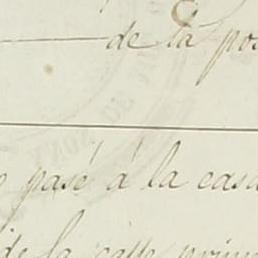 de la pos
pasé á la casa
de la calle prim